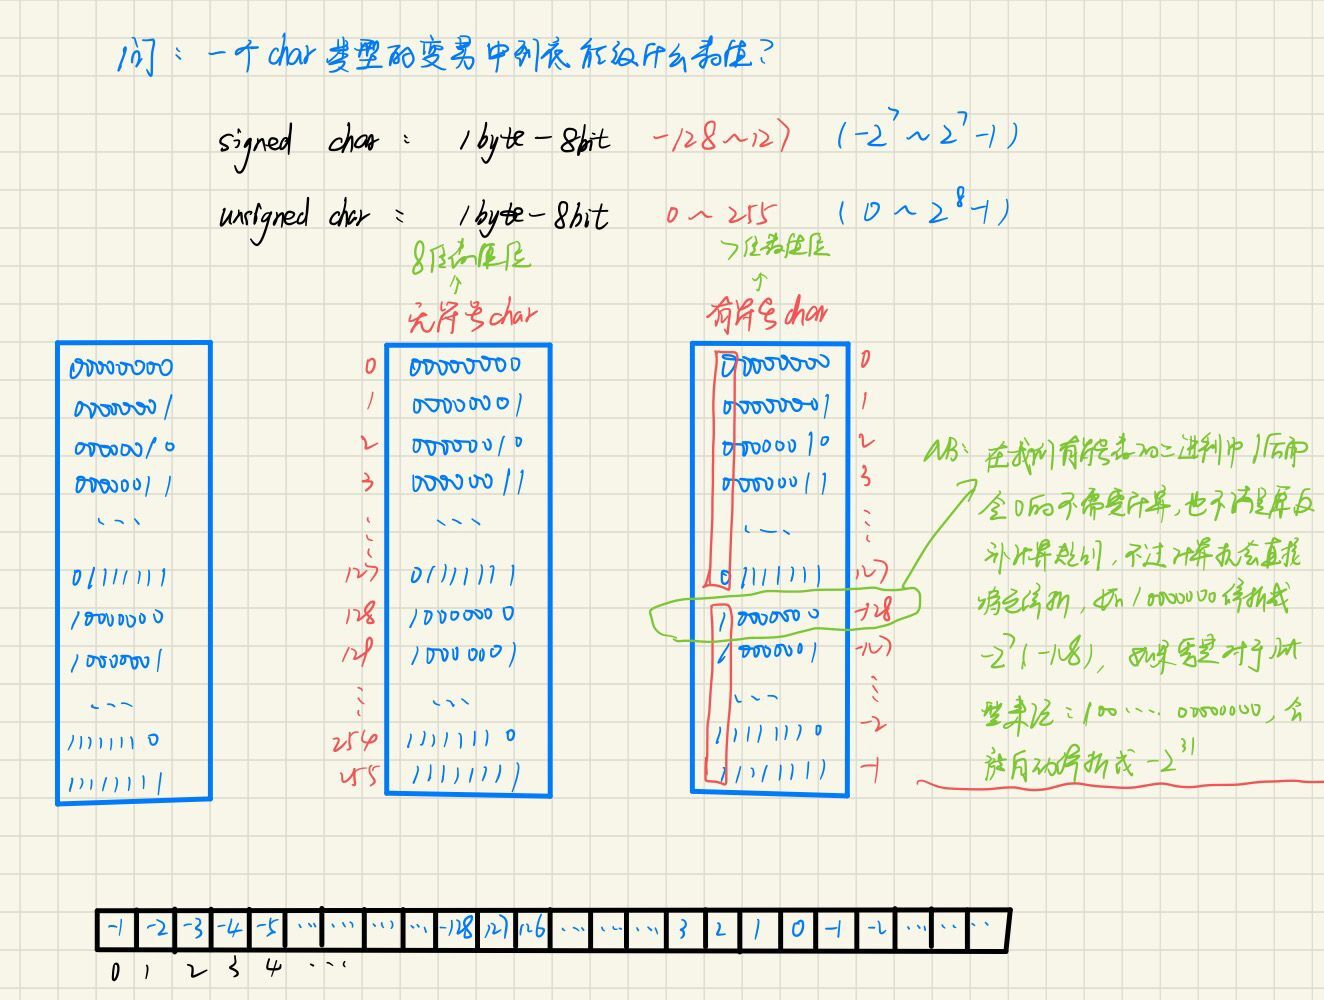 问：一个char类型的变量中到底能放什么数值？
signed char： 1byte-8bit -128~127 (-2^7~2^7-1)
unsigned char： 1byte-8bit 0~255 (0~2^8-1)
8位数值位 7位数值位
↑ ↑
无符号char 有符号char
00000000 0 00000000 00000000 0
00000001 1 00000001 00000001 1
00000010 2 00000010 00000010 2
00000011 3 00000011 00000011 3
... ⋮ ... ... ⋮
01111111 127 01111111 01111111 127
10000000 128 10000000 10000000 -128
10000001 129 10000001 10000001 -127
... ⋮ ... ... ⋮
11111110 254 11111110 11111110 -2
11111111 255 11111111 11111111 -1
NB：在我们有符号数的二进制中1后面
全0的不需要计算，也不满足原反
补计算规则，不过计算机会直接
解析，如10000000解析成
-2^7(-128)，如果对于int
型来说：100.....00000000，会
被自动解析成-2^31
-1 -2 -3 -4 -5 ... ... ... ... -128 127 126 ... ... ... 3 2 1 0 -1 -2 ... ... ...
0 1 2 3 4 ...